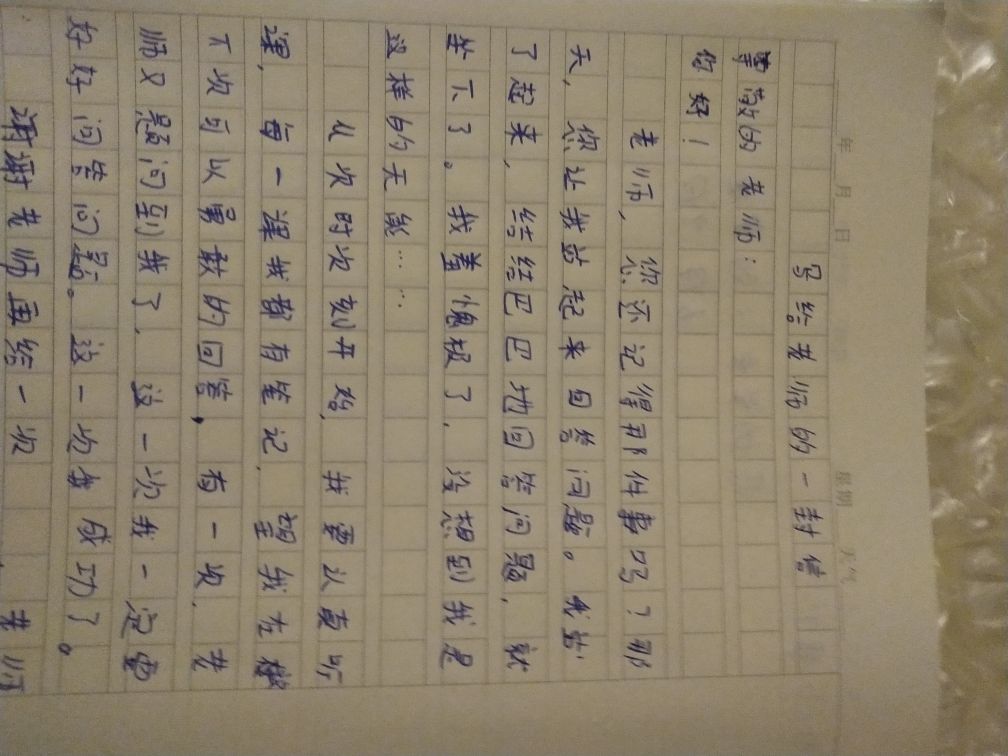 年 月 日 星期 天气
写给老师的一封信
尊敬的老师：
你好！
老师，您还记得那件事吗？那
天，您让我站起来回答问题。我站
了起来，结结巴巴地回答问题，就
坐下了。我羞愧极了，没想到我是
这样的无能……
从次时次刻开始，我要认真听
课，每一课我都有笔记，望我在
下次可以勇敢的回答，有一次，老
师又题问到我了，这一次我一定要
好好问答问题。这一次我成功了。
谢谢老师再给一次 老师